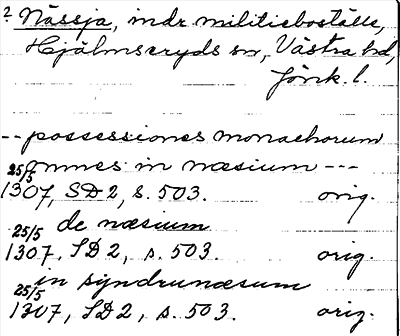 ? Nässja, indr militieboställe,
Hjälmseryds sn, Västra hd,
Jönk. l.
-- possessiones monachorum
omnes in næsium ---
25/5
1307, SD 2, s. 503. orig.
de næsium
25/5
1307, SD 2, s. 503. orig.
in syndrunæsum
25/5
1307, SD 2, s. 503. orig.